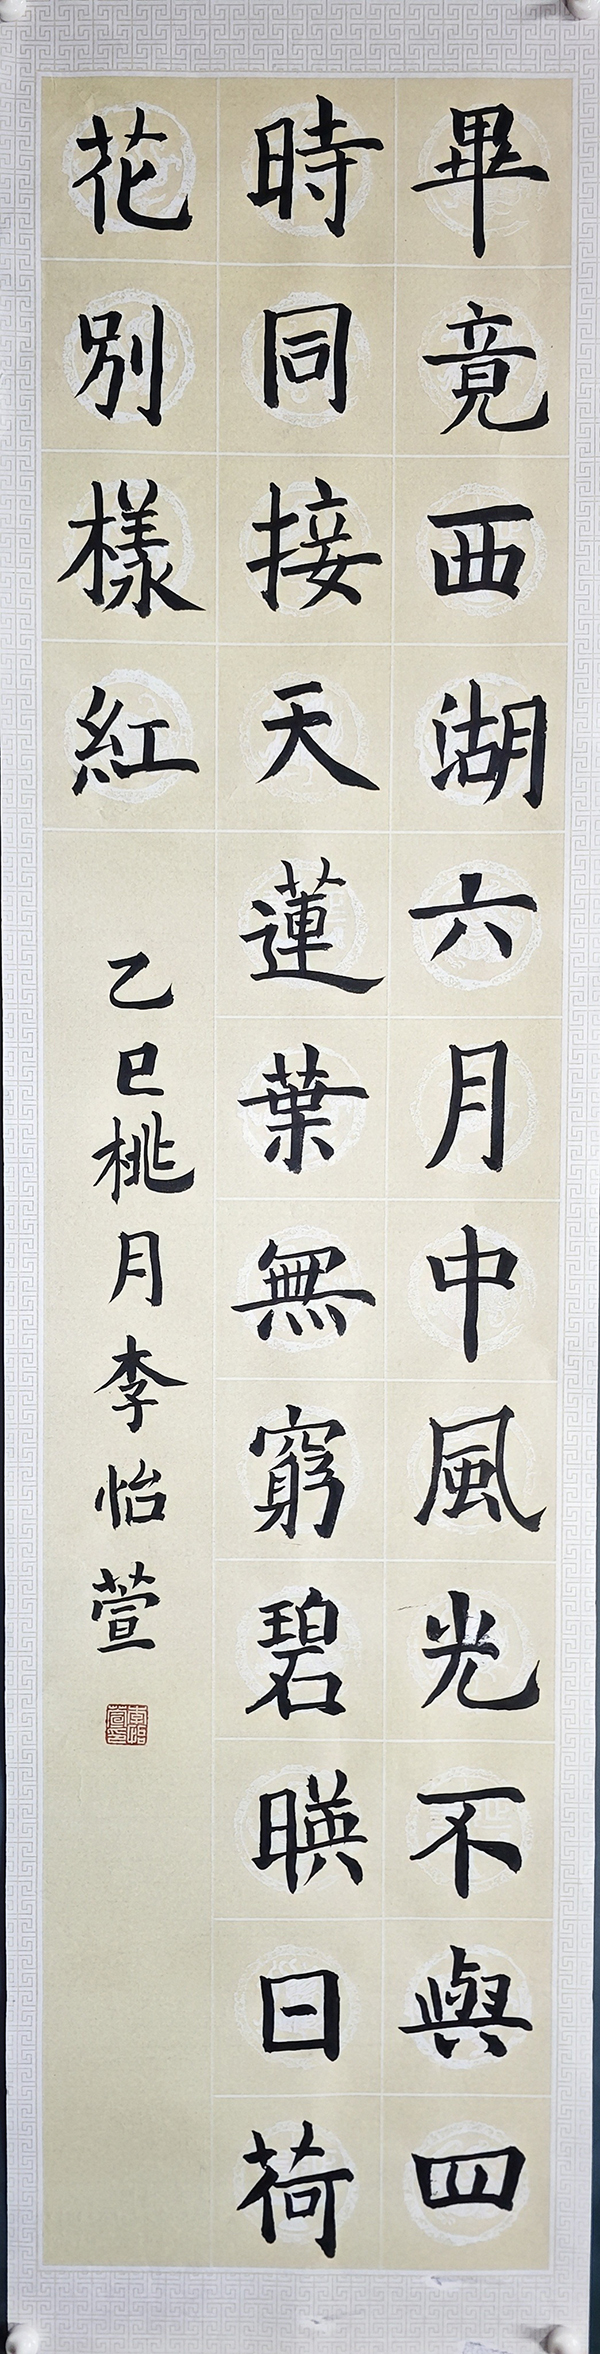 畢竟西湖六月中風光不與四
時同接天蓮葉無窮碧暎日荷
花別樣紅
乙巳桃月李怡萱
李怡萱印